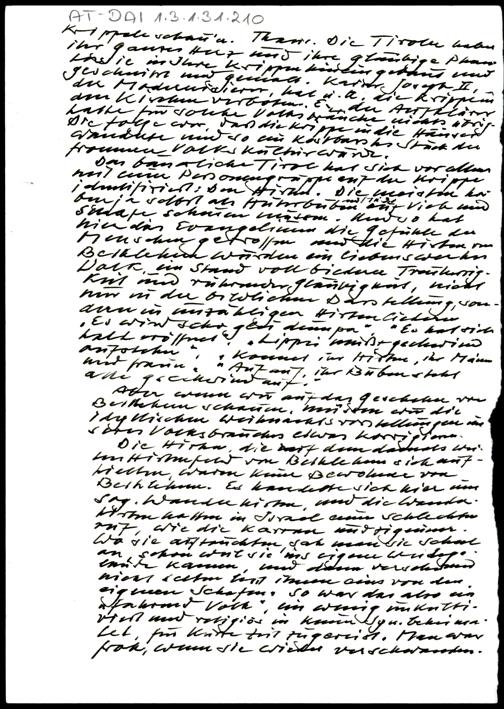 AT-DAI 1.3.1.31.210
Krippele schau'n. Thaur. Die Tiroler haben
ihr ganzes Herz und ihre gläubige Phan
tasie in ihre Krippen hineingebaut und
geschnitzt und gemalt. Kaiser Joseph II,
der Modernisierer, hat u. a. die Krippe in
den Kirchen verboten. Er, der Aufklärer
hatte für solche Volksbräuche nichts übrig
Die Folge war, daß die Krippe in die Häuser
wanderte und so ein kostbares Stück der
frommen Volkskultur wurde.
Das bäuerliche Tirol hat sich vor allem
mit einer Personengruppe auf der Krippe
identifiziert: Den Hirten. Die meisten ha
ben ja selbst als Hüterbuben auf Vieh und
Schafe schauen müssen. Und so hat
hier das Evangelium die Gefühle der
Menschen getroffen und die Hirten von
Bethlehem wurden ein liebenswertes
Volk, ein Stand voll biederer Treuherzig-
keit und rührender Gläubigkeit, nicht
nur in der bildlichen Darstellung, son-
dern in unzähligen Hirtenliedern
"Es wird scho glei dumpa" "Es hat sich
halt eröffnet", "Lippei mußt gschwind
aufstehen", "Kommet ihr Hirten, ihr Männer
und Fraun" "Auf auf, ihr Buben steht
alle geschwind auf."
Aber wenn wir auf das Geschehen von
Bethlehem schauen, müssen wir die
idyllischen Weihnachtsvorstellungen un
seres Volksbrauches etwas korrigieren.
Die Hirten, die auf dem damals wei
ten Hirtenfeld von Bethlehem sich auf-
hielten, waren keine Bewohner von
Bethlehem. Es handelte sich hier um
sog. Wanderhirten, und die Wander-
hirten hatten in Israel einen schlechten
ruf, wie die Karrner und Zigeuner.
Wo sie auftauchten sah man sie scheel
an, schon weil sie ins eigene Weidege-
lände kamen, und dann verschwand
nicht selten mit ihnen eins von den
eigenen Schafen. So war das also ein
"fahrend Volk", ein wenig unkulti-
viert und religiös in keiner Syn. beheima-
tet, für kurze Zeit zugereist. Man war
froh, wenn sie wieder verschwanden.